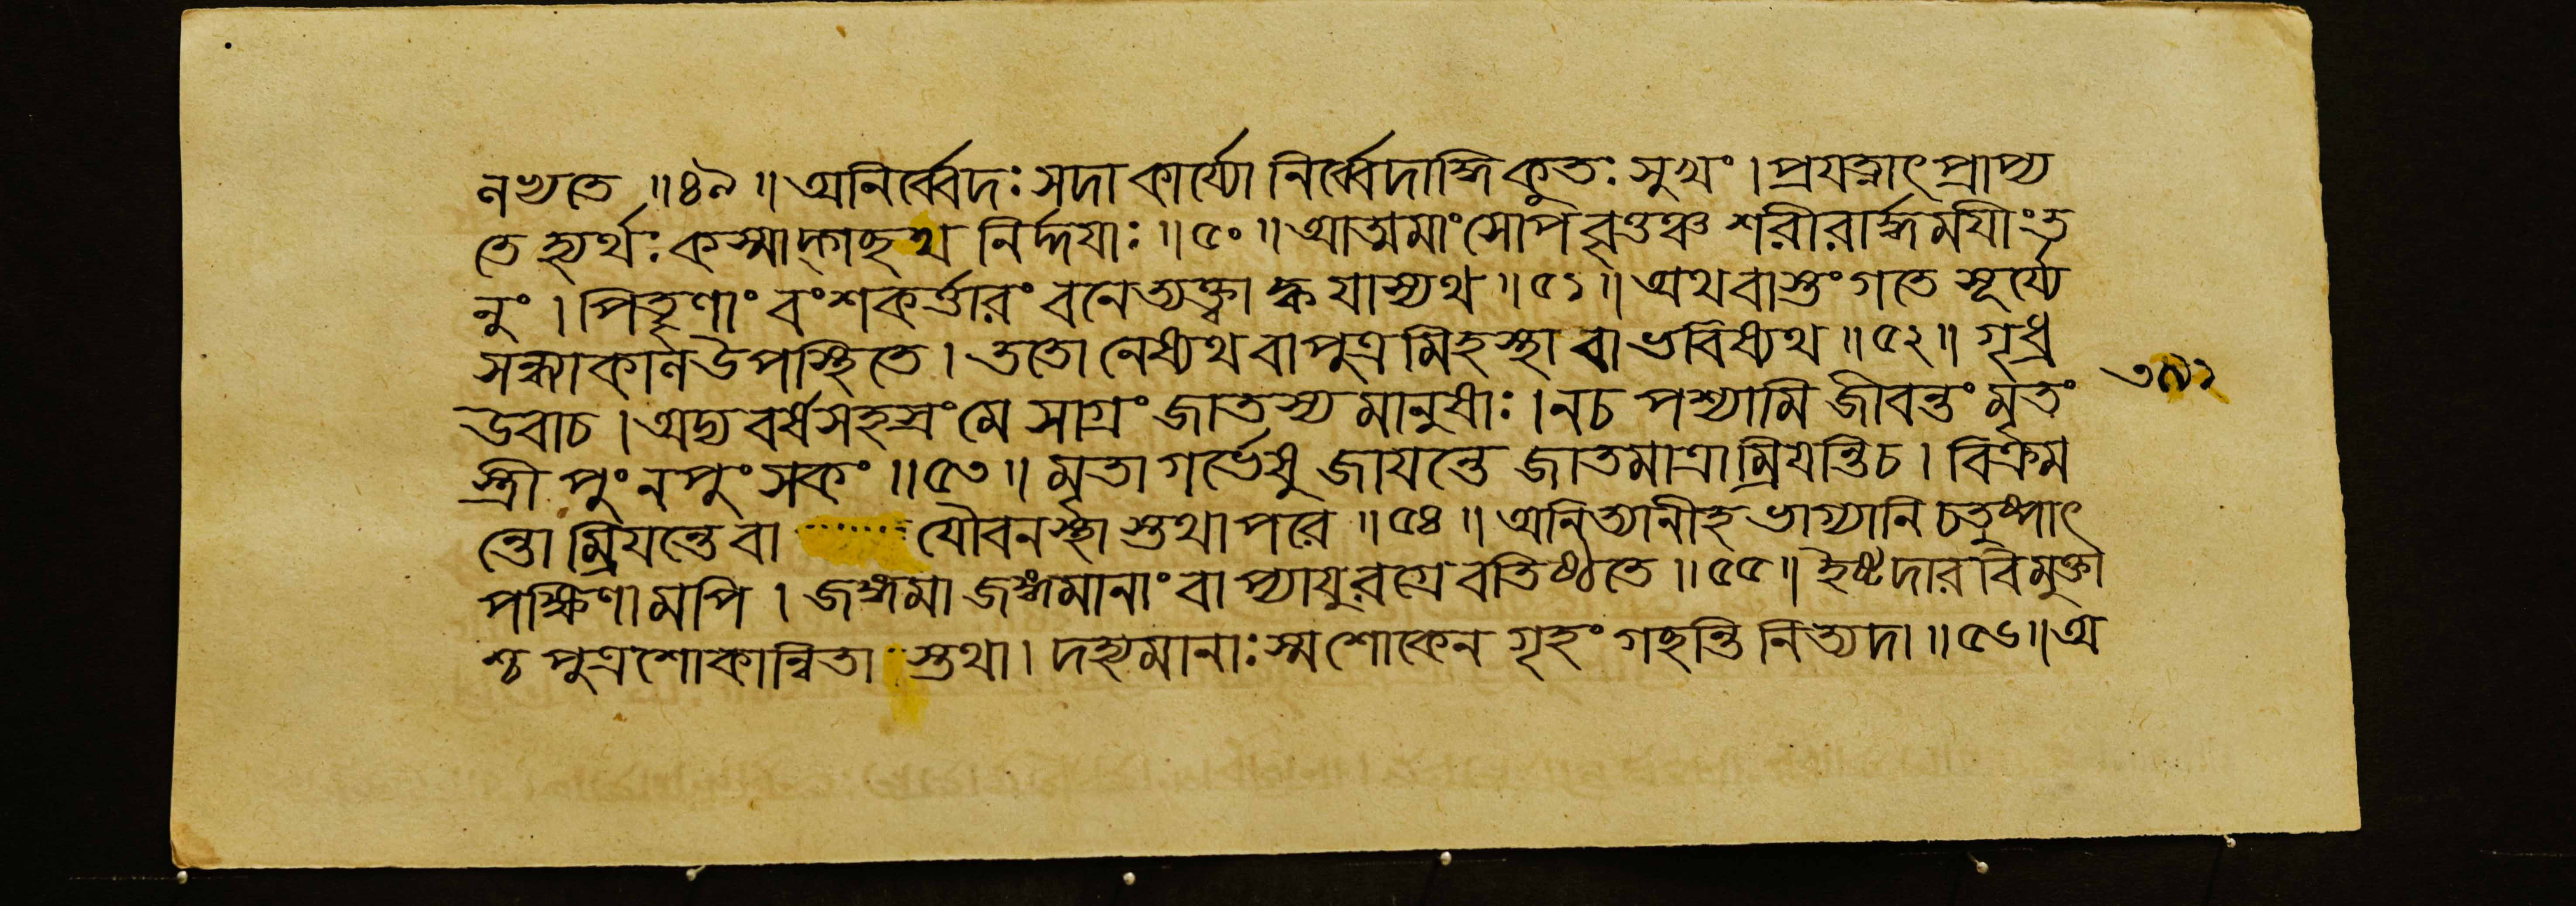 নখতে ॥৪৯॥ অনির্ব্বেদঃ সদা কার্য্যো নির্ব্বেদাদ্দি কুতঃ সুখং । প্রযত্নাৎ প্রাপ্য
তে হ্যর্থঃ কস্মাদ্গছথ নির্দ্দযাঃ ॥৫০॥ আত্মমাংসোপবৃত্তঞ্চ শরীরার্দ্ধমযীং ত
নুং । পিতৄণাং বংশকর্ত্তারং বনে ত্যক্ত্বা ক্ক যাস্যথ ॥৫১॥ অথবাস্তং গতে সূর্য্যে
সন্ধ্যাকাল উপস্থিতে । ততো নেষ্যথ বা পুত্রমিহস্থা বা ভবিষ্যথ ॥৫২॥ গৃধ্র
উবাচ । অদ্য বর্ষসহস্রং মে সাগ্রং জাতস্য মানুষাঃ । ন চ পশ্যামি জীবন্তং মৃতং
স্ত্রী পুং নপুংসকং ॥৫৩॥ মৃতা গর্ভেষু জাযন্তে জাতমাত্রা ম্রিযন্তি চ । বিক্রম
ন্তো ম্রিযন্তে বা ...... যৌবনস্থা স্তথাপরে ॥৫৪॥ অনিত্যানীহ ভাগ্যানি চতুষ্পাৎ
পক্ষিণামপি । জঙ্গমা জঙ্গমানাং বাপ্যাযুরগ্রে বতিষ্ঠতে ॥৫৫॥ ইষ্টদার বিমুক্তা
শ্চ পুত্রশোকান্বিতা স্তথা । দহ্যমানাঃ স্ম শোকেন গৃহং গছন্তি নিত্যদা ॥৫৬॥ অ
৩৯২